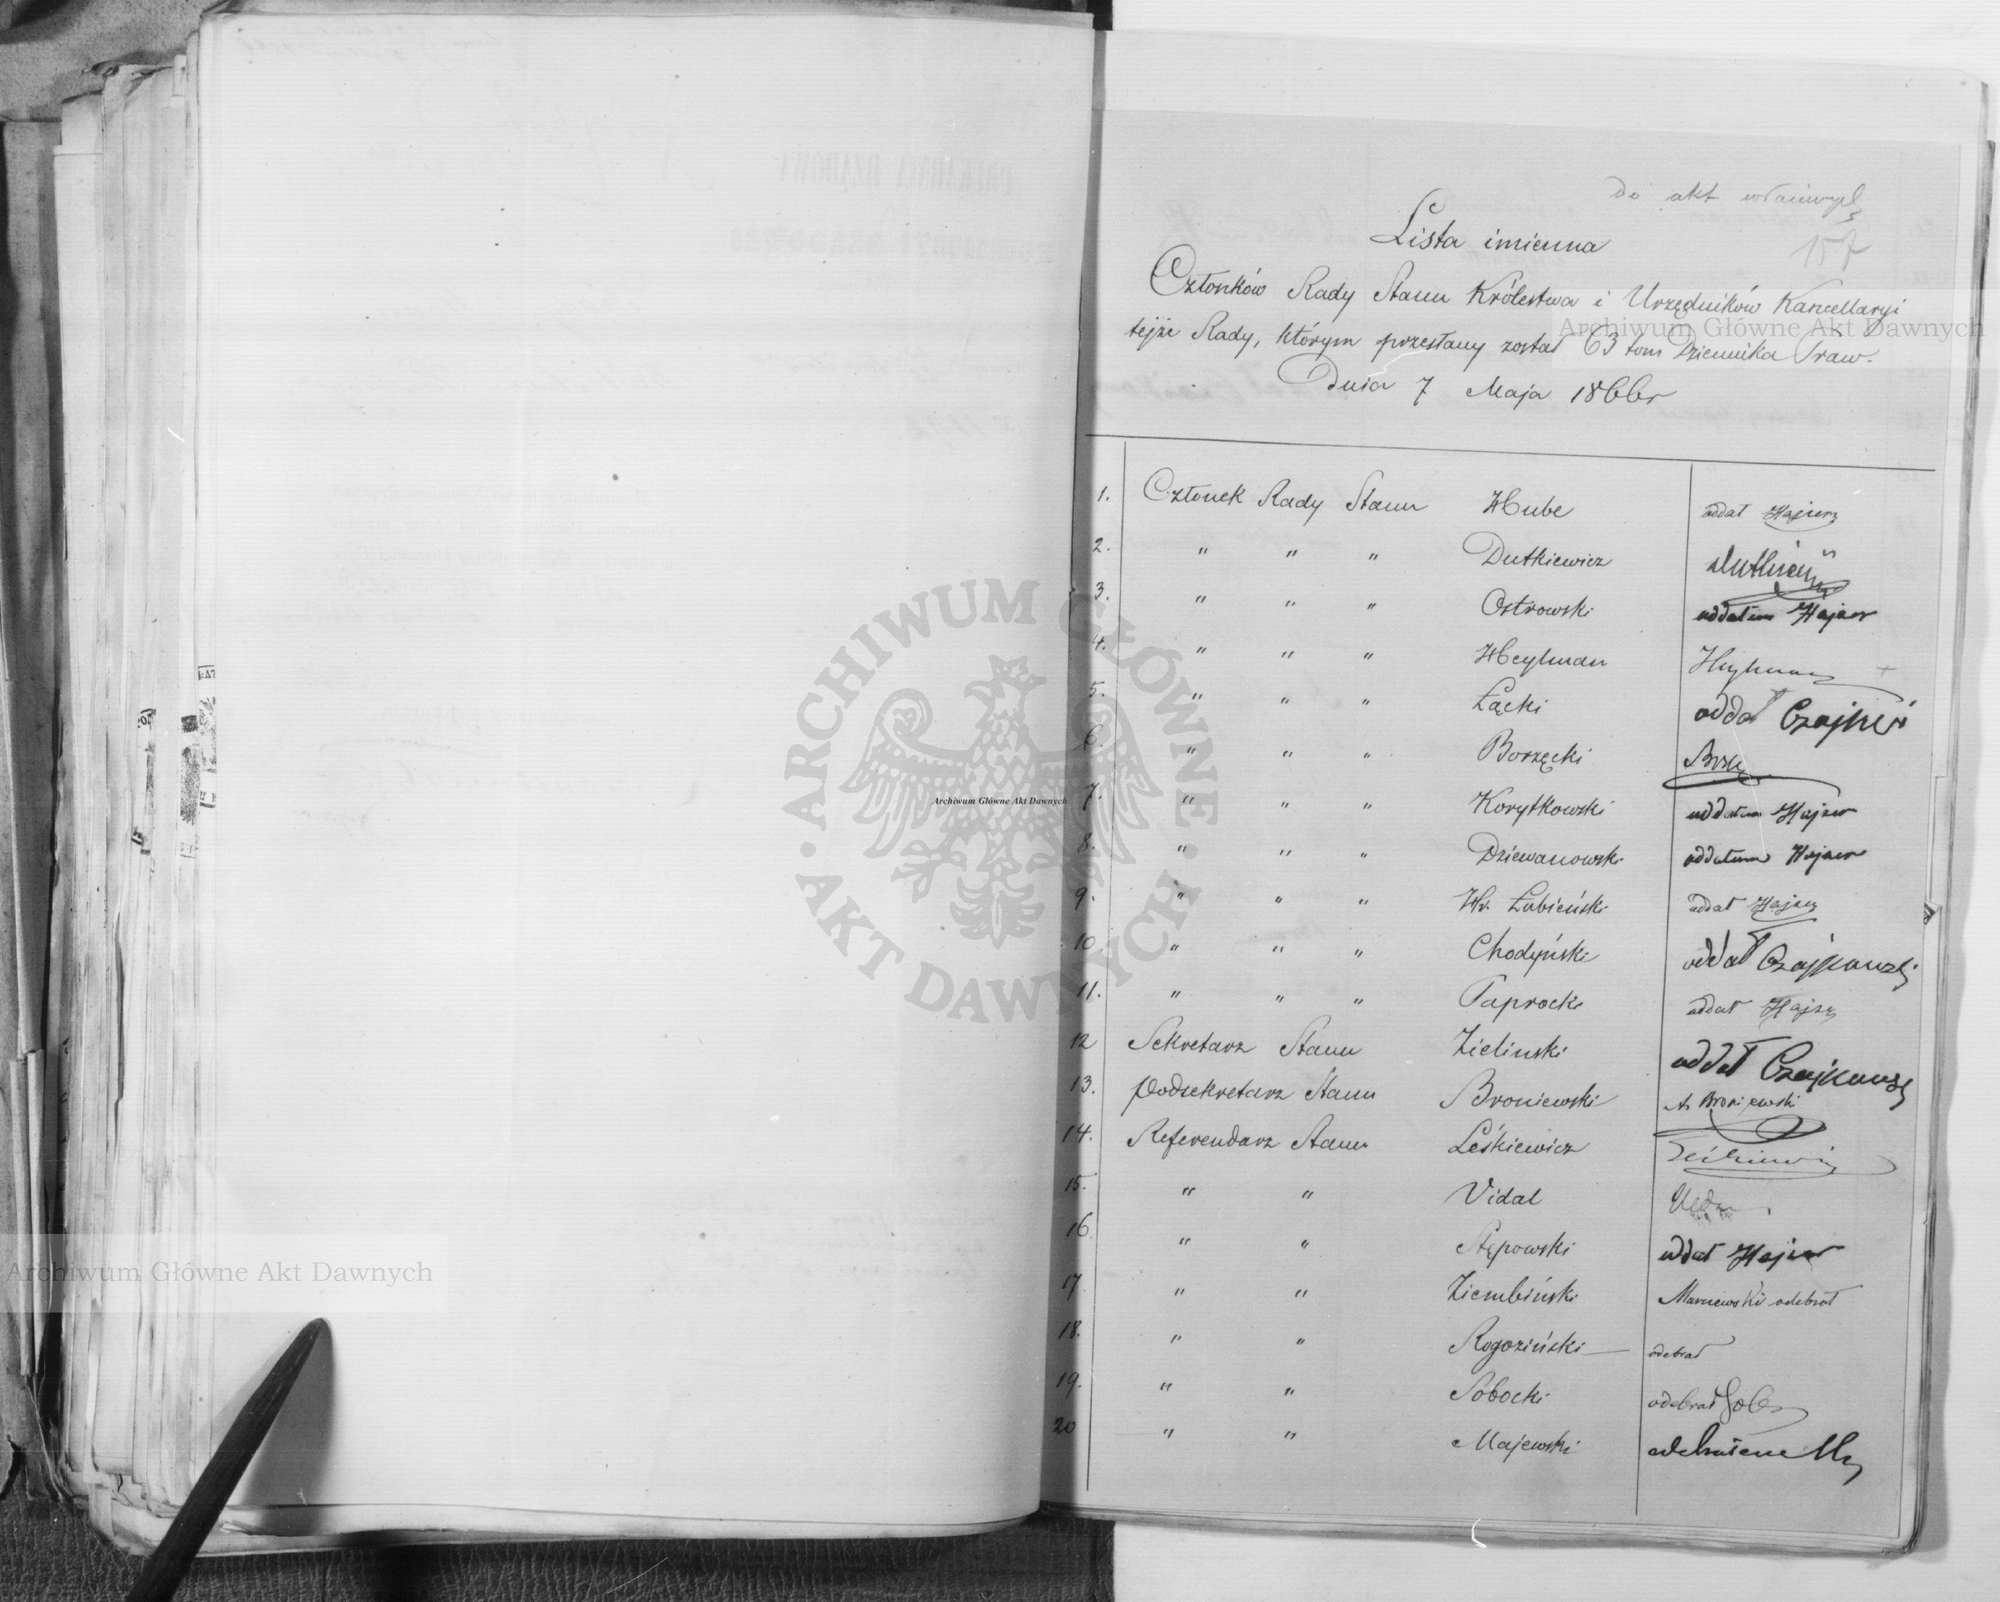 do akt właściwych
157
Lista imienna
Członków Rady Stanu Królestwa i Urzędników Kancellaryi
tejże Rady, którym przesłany został 63 tom Dziennika Praw.
Dnia 7 Maja 1866 r
1. Członek Rady Stanu Hube oddał
2. " " " Dutkiewicz Dutkiewicz
3. " " " Ostrowski oddałem
4. " " " Heylman Heylman
5. " " " Łącki oddał
6. " " " Borzęcki
7. " " " Korytkowski oddałem
8. " " " Dziewanowski oddałem
9. " " " Hr. Łubieński oddał
10 " " " Chodyński oddał Czajkowski
11. " " " Paprocki oddał
12 Sekretarz Stanu Zieliński oddał Czajkowski
13. Podsekretarz Stanu Broniewski A. Broniewski
14. Referendarz Stanu Leśkiewicz Leśkiewicz
15. " " Vidal
16 " " Stępowski oddał
17 " " Ziembiński odebrał
18. " " Rogoziński odebrał
19. " " Sobocki odebrał
20 " " Majewski odebrałem
Archiwum Główne Akt Dawnych
Archiwum Główne Akt Dawnych
Archiwum Główne Akt Dawnych
ARCHIWUM GŁÓWNE AKT DAWNYCH